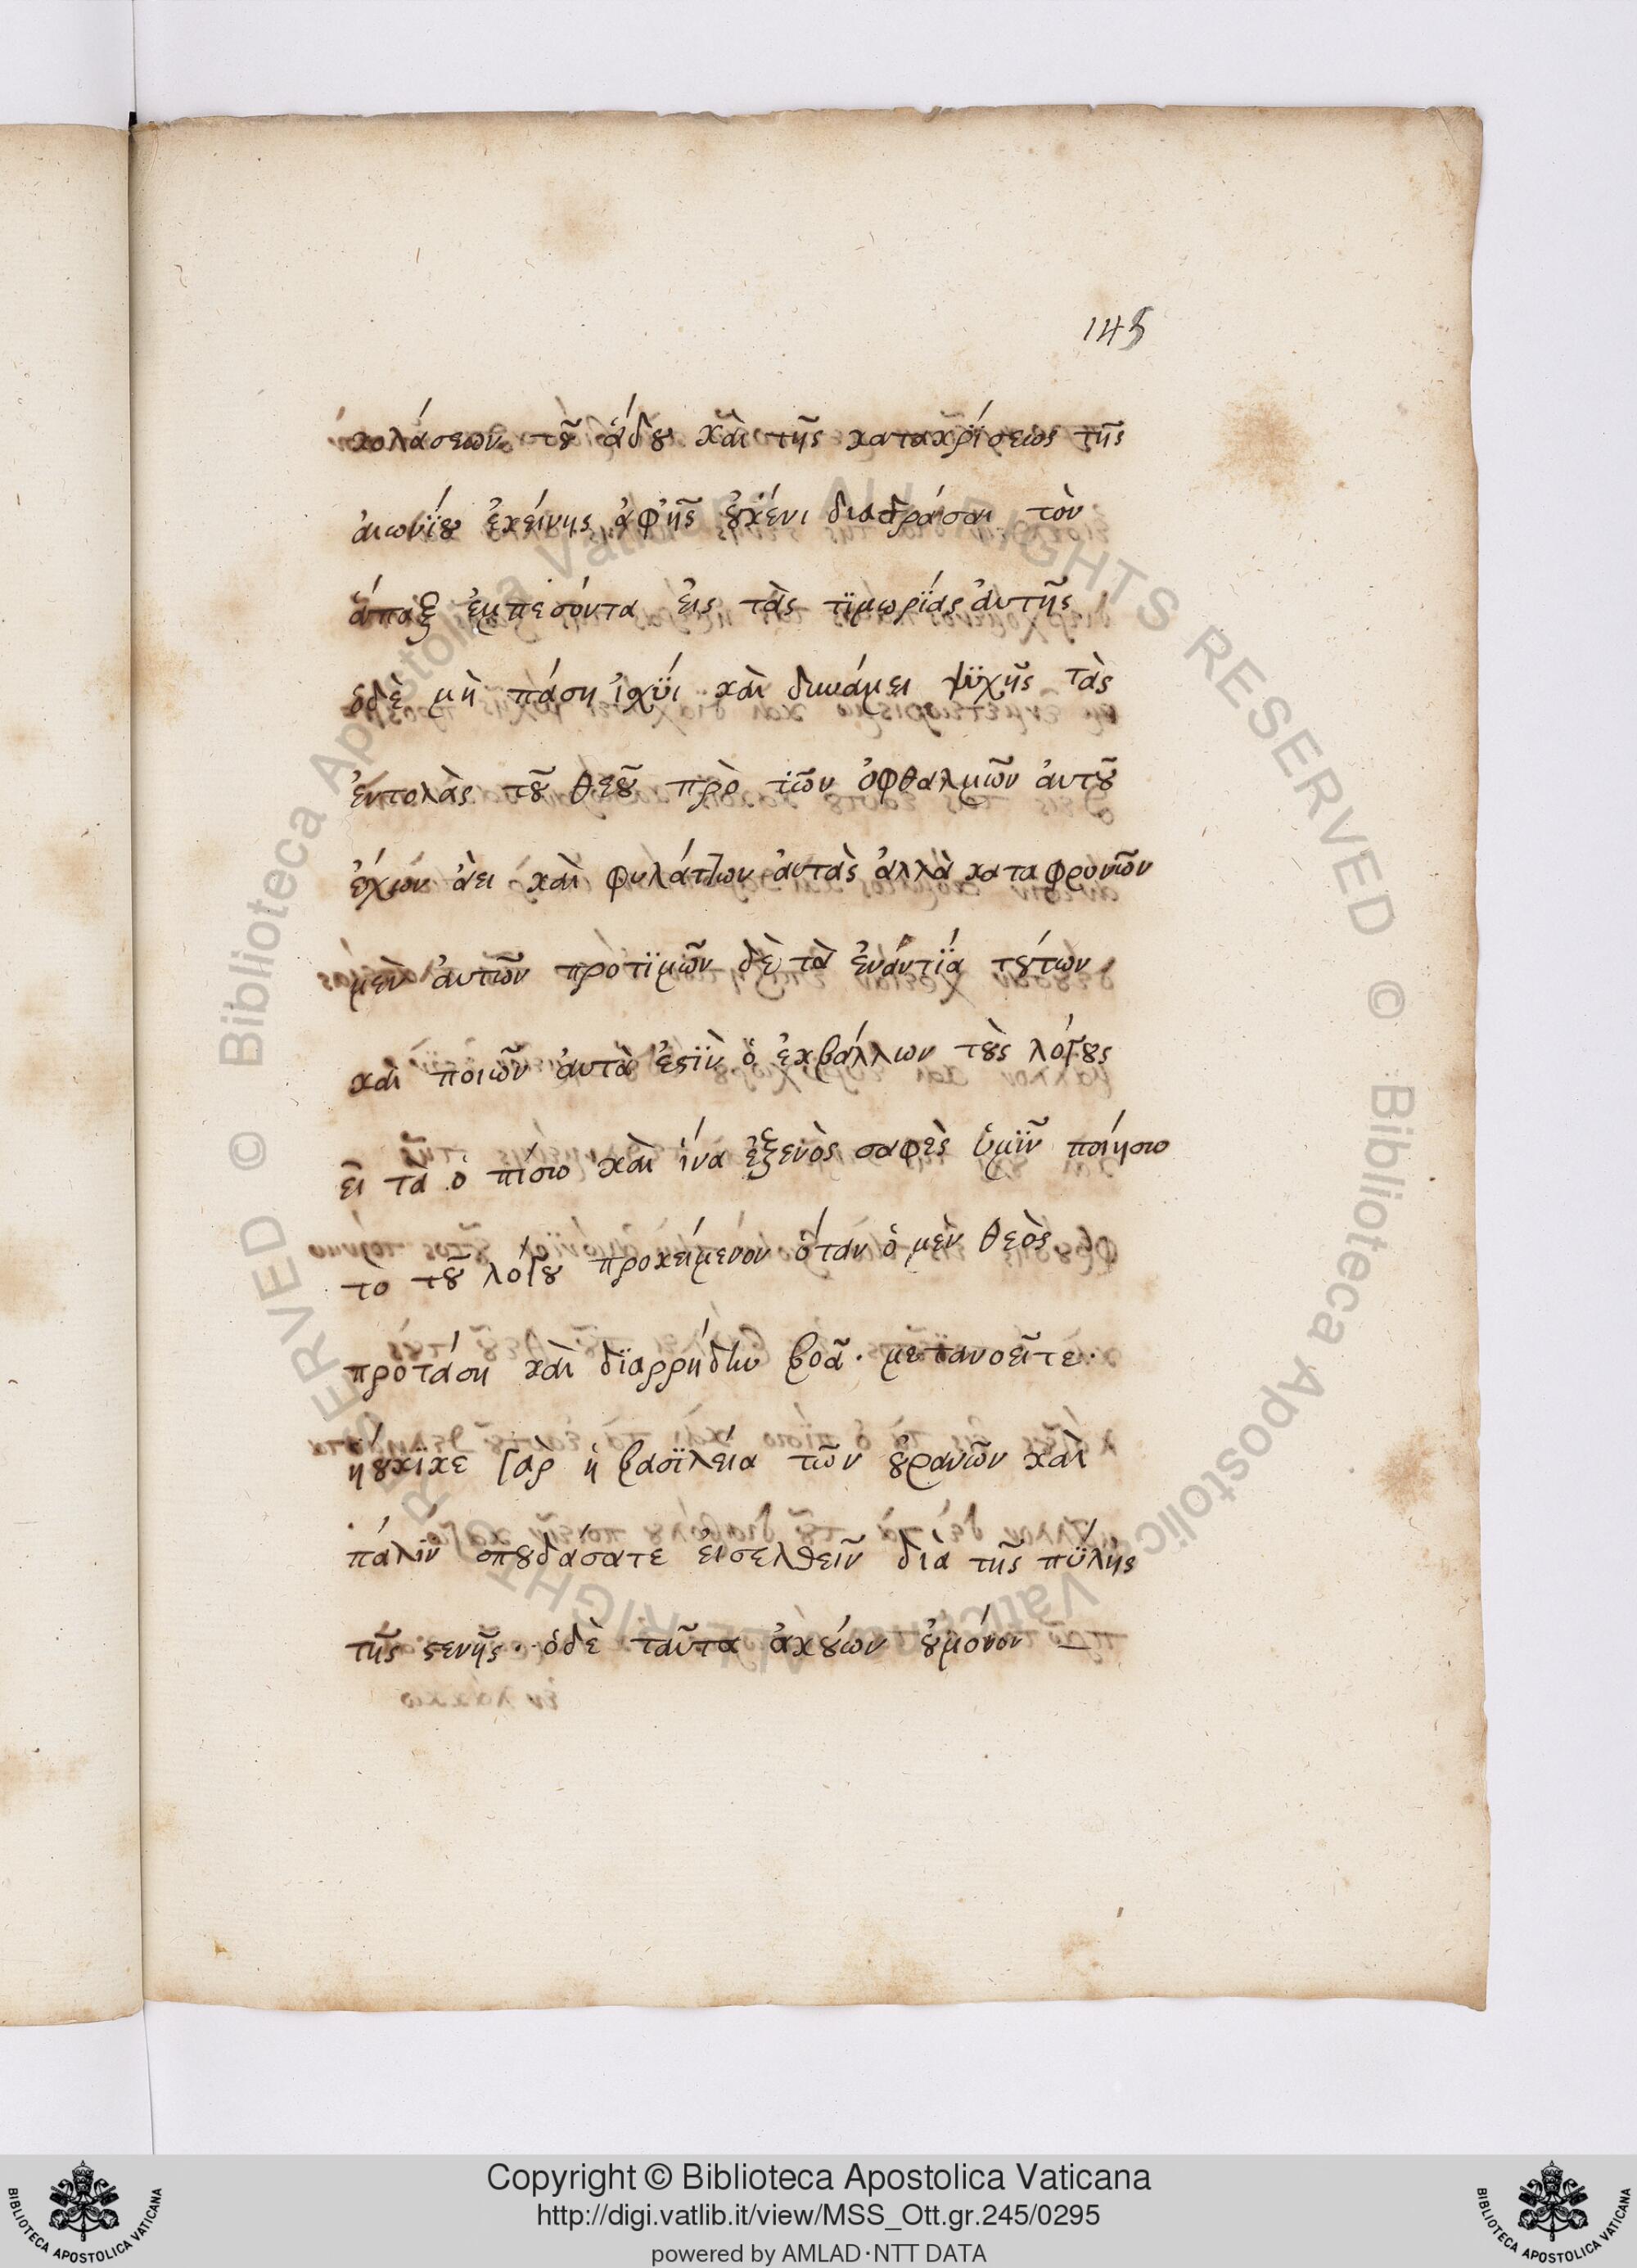 145
κολάσεων τοῦ ἅδου καὶ τῆς κατακρίσεως τῆς
ἀιωνΐου ἐκείνης ἀφῆς οὐκένι διαδράσαι τὸν
ἅπαξ ἐμπεσόντα εἰς τὰς τϊμωρΐας ἀυτῆς
ὁδὲ μὴ πάση ἰσχΰϊ καὶ δυνάμει ψϋχῆς τὰς
ἐντολὰς τοῦ θεοῦ πρὸ τῶν ὀφθαλμῶν ἀυτοῦ
ἔχων ἀεὶ καὶ φυλάττων ἀυτὰς ἀλλὰ καταφρονῶν
μὲν ἀυτῶν προτϊμῶν δὲ τὰ ἐνάντϊα τούτων
καὶ ποιῶν ἀυτὰ ἐστϊν ὁ ἐκβάλλων τοὺς λόγους
εἰ τὰ ὀπίσω καὶ ἵνα ἐξενὸς σαφὲς ὑμῖν ποιήσω
το τοῦ λόγου προκείμενον ὅταν ὁ μὲν θεὸς
προτάση καὶ δϊαρρήδην βοᾶ · μετανοεῖτε ·
ἤγγϊκε γὰρ ἡ βασϊλεία τῶν οὐρανῶν καὶ
πάλιν σπουδάσατε ἐισελθεῖν διὰ τῆς πΰλης
τῆς στενῆς · ὁδὲ ταῦτα ἀκούων οὐμόνον —
Copyright © Biblioteca Apostolica Vaticana
http://digi.vatlib.it/view/MSS_Ott.gr.245/0295
powered by AMLAD·NTT DATA
BIBLIOTECA APOSTOLICA VATICANA
BIBLIOTECA APOSTOLICA VATICANA